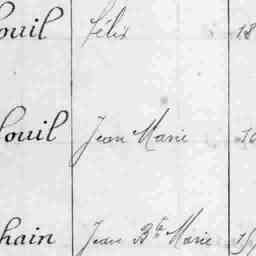 ouil Félix 18
ouil Jean Marie
hain Jean Bte Marie